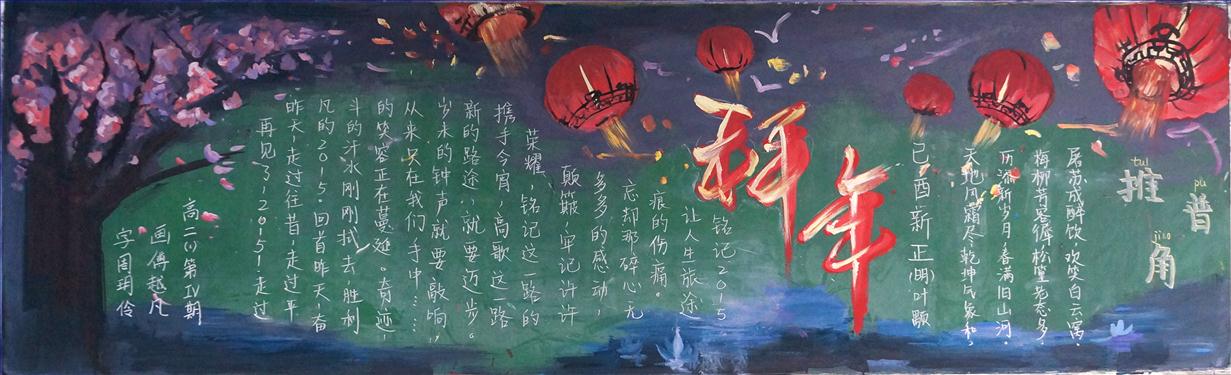 推普角
tuī pǔ jiǎo
拜年
己酉新正(明)叶颙
天地风霜尽,乾坤气象和,
历添新岁月,春满旧山河。
梅柳芳容徲,松篁老态多,
屠苏成醉饮,欢笑白云窝。
再见了,2015!走过
昨天,走过往昔,走过平
凡的2015。回首昨天,奋
斗的汗水刚刚拭去,胜利
的笑容正在蔓延。奇迹,
从来只在我们手中……
岁末的钟声就要敲响,
新的路途,就要迈步。
携手今宵,高歌这一路
荣耀,铭记这一路的
颠簸,牢记许许
多多的感动,
忘却那碎心无
痕的伤痛。
让人生旅途
铭记2015
高二(1)第Ⅳ期
画 傅越凡
字 周玥伶